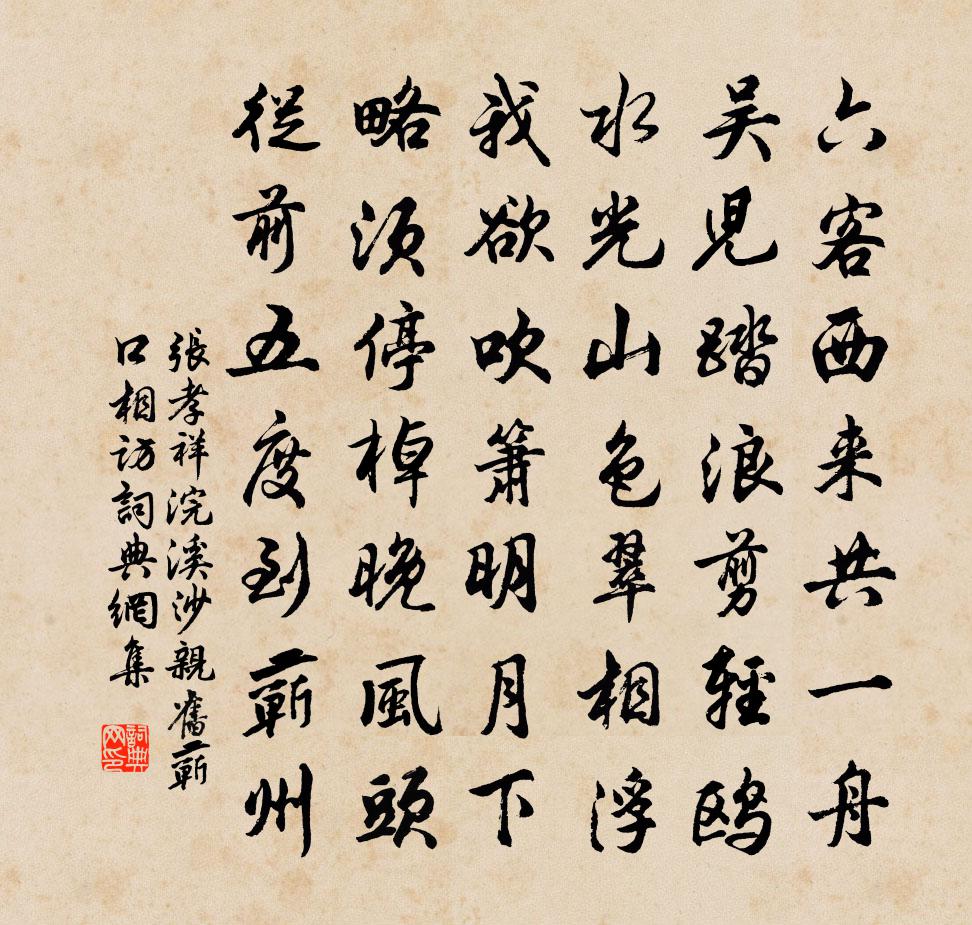 六客西来共一舟
吴兒踏浪剪輕鷗
水光山色翠相浮
我欲吹簫明月下
略須停棹晚風頭
從前五度到蘄州
張孝祥浣溪沙親舊蘄
口相訪詞典網集
詞典网印